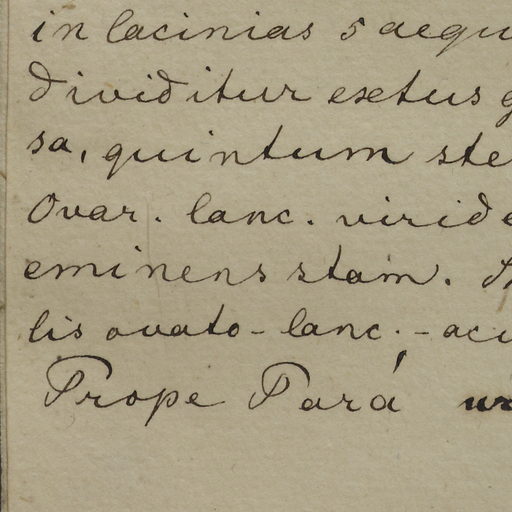 in lacinias 5 aequ
dividitur extus g
sa, quintum ste
Ovar. lanc. viride
eminens stam.
lis ovato-lanc.-acu
Prope Pará